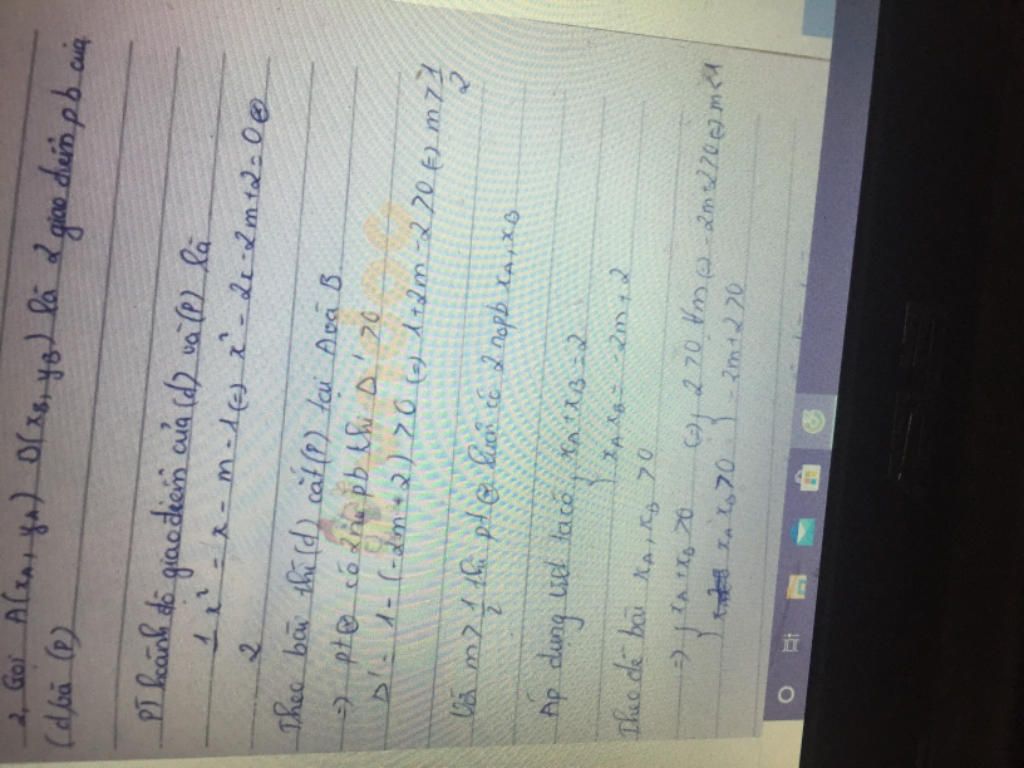 2, Gọi A(xA, yA) B(xB, yB) là 2 giao điểm pb của
(d) và (P)
PT hoành độ giao điểm của (d) và (P) là
1/2 x² = x - m - 1 (=) x² - 2x - 2m + 2 = 0 ⊛
Theo bài thì (d) cắt (P) tại A và B
=) pt ⊛ có 2 no pb khi Δ' >0
Δ' = 1 - (-2m + 2) >0 (=) 1 + 2m - 2 >0 (=) m > 1/2
Với m > 1/2 thì pt ⊛ luôn có 2 nopb xA, xB
Áp dụng vi ét ta có { xA + xB = 2
{ xA xB = -2m + 2
Theo đề bài xA, xB >0
=) { xA + xB >0 (=) { 2 >0 t/m (=) -2m + 2 >0 (=) m < 1
{ xA xB >0 { -2m + 2 >0